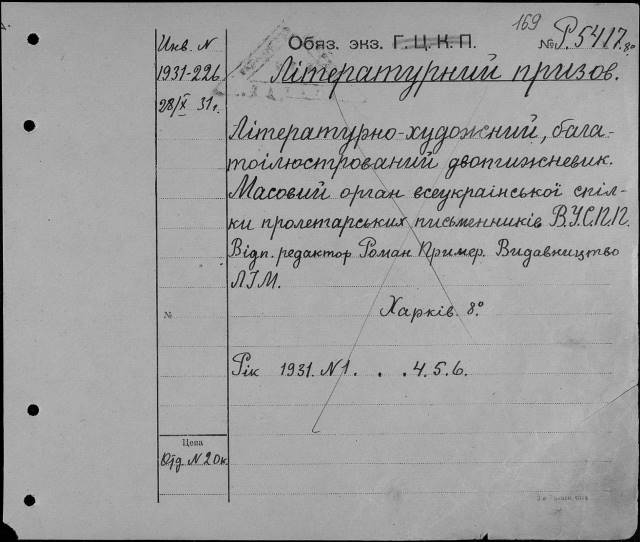 169
Инв. N
Обяз. экз. Г. Ц. К. П.
№ Р.5417. 8º
1931-226
Літературний призов.
28/X 31 г.
Літературно-художній, бага-
тоілюстрований двотижневик.
Масовий орган всеукраїнської спіл-
ки пролетарських письменників В.У.С.П.П.
Відп. редактор Роман Пример. Видавництво
ЛІМ.
№
Харків. 8º
Рік 1931. N 1. . . 4. 5. 6.
Цена
Отд. N 20 к.